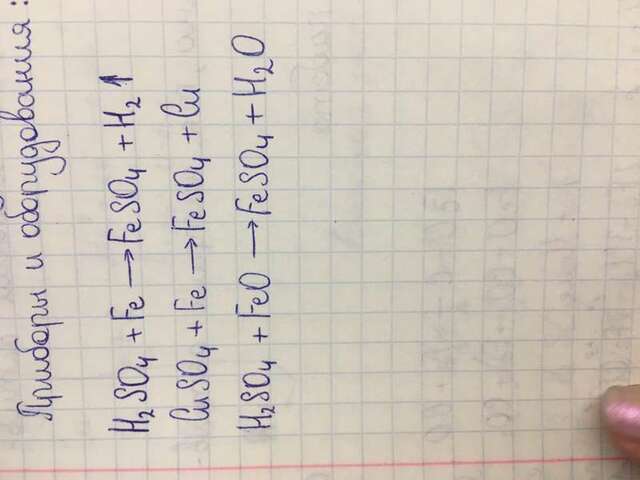 Приборы и оборудования:
H₂SO₄ + Fe → FeSO₄ + H₂↑
CuSO₄ + Fe → FeSO₄ + Cu
H₂SO₄ + FeO → FeSO₄ + H₂O